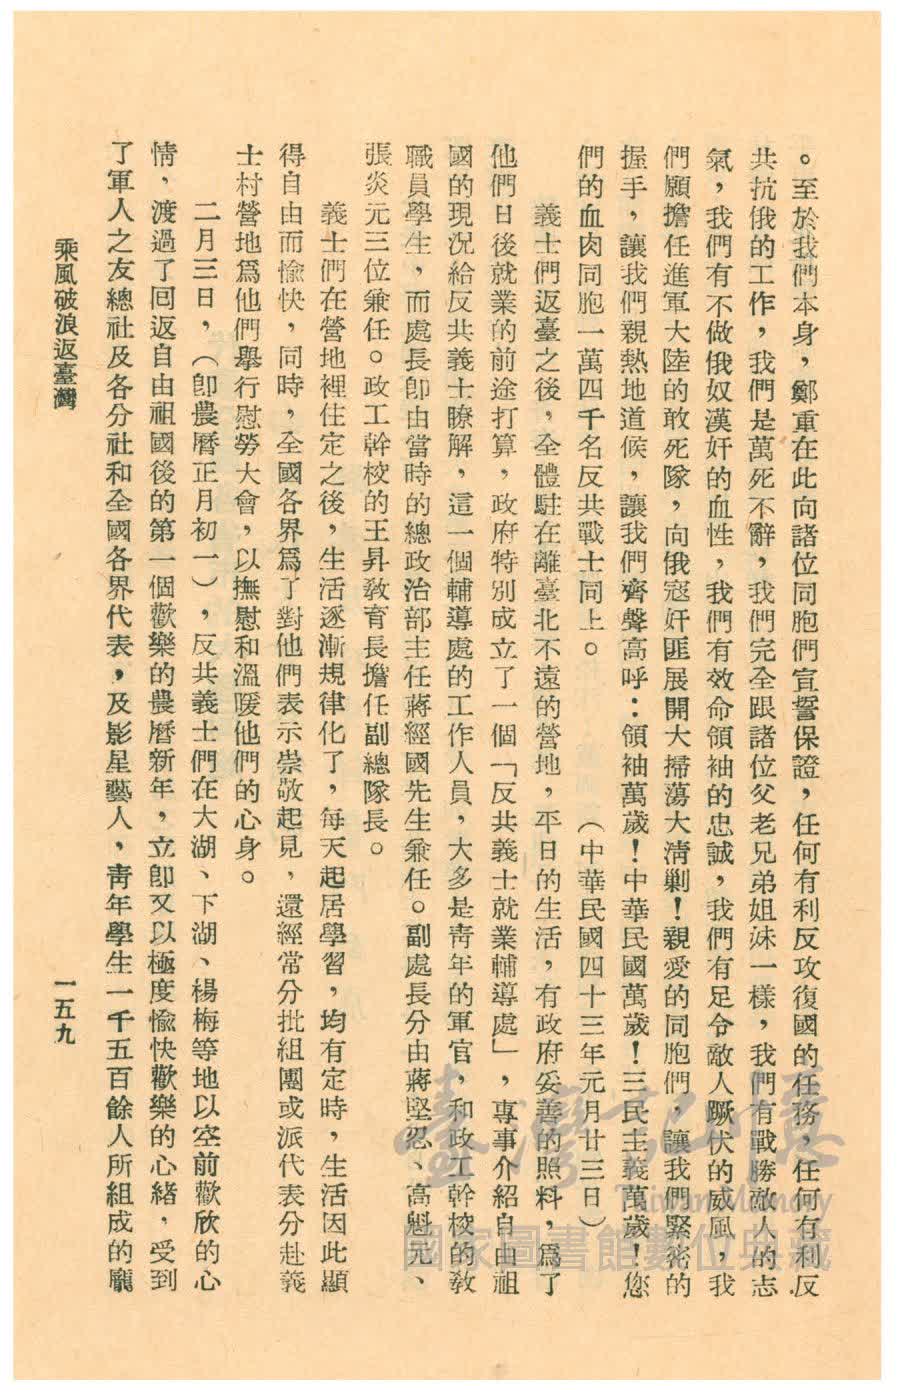 。至於我們本身，鄭重在此向諸位同胞們宣誓保證，任何有利反攻復國的任務，任何有利反
共抗俄的工作，我們是萬死不辭，我們完全跟諸位父老兄弟姐妹一樣，我們有戰勝敵人的志
氣，我們有不做俄奴漢奸的血性，我們有效命領袖的忠誠，我們有足令敵人蹶伏的威風，我
們願擔任進軍大陸的敢死隊，向俄寇奸匪展開大掃蕩大清剿！親愛的同胞們，讓我們緊密的
握手，讓我們親熱地道候，讓我們齊聲高呼：領袖萬歲！中華民國萬歲！三民主義萬歲！您
們的血肉同胞一萬四千名反共戰士同上。　（中華民國四十三年元月廿三日）
義士們返臺之後，全體駐在離臺北不遠的營地，平日的生活，有政府妥善的照料，爲了
他們日後就業的前途打算，政府特別成立了一個「反共義士就業輔導處」，專事介紹自由祖
國的現況給反共義士瞭解，這一個輔導處的工作人員，大多是青年的軍官，和政工幹校的教
職員學生，而處長卽由當時的總政治部主任蔣經國先生兼任。副處長分由蔣堅忍、高魁元、
張炎元三位兼任。政工幹校的王昇教育長擔任副總隊長。
義士們在營地裡住定之後，生活逐漸規律化了，每天起居學習，均有定時，生活因此顯
得自由而愉快，同時，全國各界爲了對他們表示崇敬起見，還經常分批組團或派代表分赴義
士村營地爲他們舉行慰勞大會，以撫慰和溫暖他們的心身。
二月三日，（卽農曆正月初一），反共義士們在大湖、下湖、楊梅等地以空前歡欣的心
情，渡過了回返自由祖國後的第一個歡樂的農曆新年，立卽又以極度愉快歡樂的心緒，受到
了軍人之友總社及各分社和全國各界代表，及影星藝人，靑年學生一千五百餘人所組成的龐
乘風破浪返臺灣
一五九
臺灣記憶
Taiwan Memory
國家圖書館數位典藏